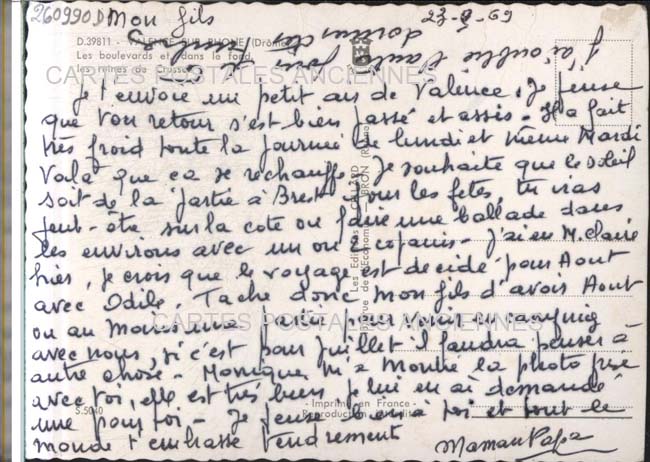 260990D Mon fils 23-8-69
j'ai oublié l'autre fois de te
donner des timbres
D.39811. - VALENCE-SUR-RHONE (Drôme)
Les boulevards et dans le fond,
les ruines de Crussol
CARTES POSTALES ANCIENNES
Je t'envoie un petit air de Valence. Je pense
que ton retour s'est bien passé et assis - Il a fait
très froid toute la journée de lundi et même Mardi
voilà que ça se réchauffe, Je souhaite que le soleil
soit de la partie à Brest pour les fêtes, tu iras
peut-être sur la cote ou faire une ballade dans
les environs avec un ou 2 copains - J'ai eu M. Claire
hier, je crois que le voyage est décidé pour Aout
avec Odile. Tache donc mon fils d'avoir Aout
ou au moins une partie pour venir en camping
CARTES POSTALES ANCIENNES
avec nous, si c'est pour juillet il faudra penser à
autre chose - Monique m'a montré la photo prise
avec toi, elle est très bien je lui en ai demandé
une pour toi - Je pense bien à toi et tout le
monde t'embrasse tendrement
Maman Papa
S.5040
- Imprimé en France -
Reproduction interdite
Les Editions